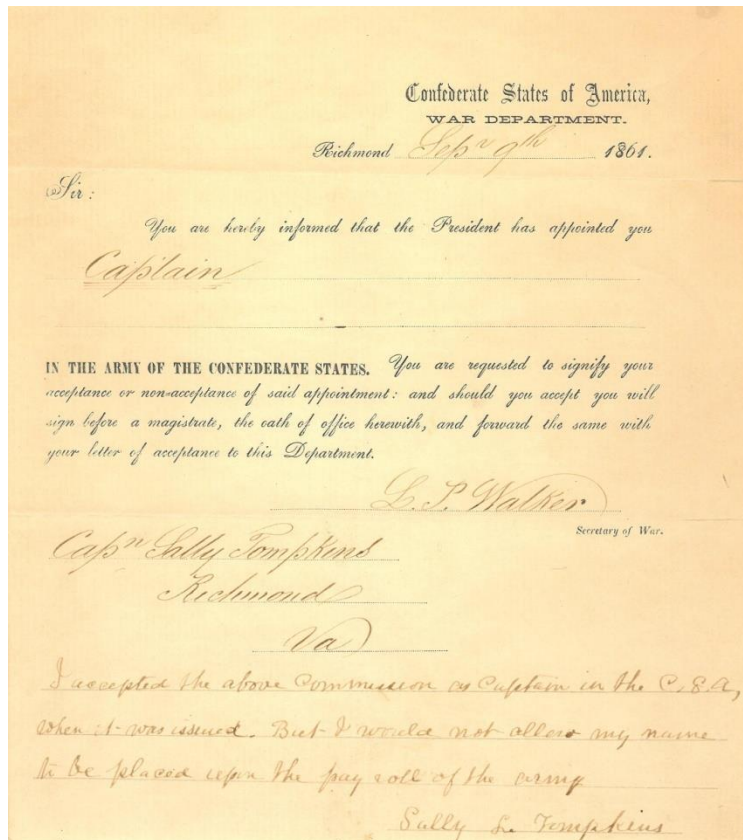 Confederate States of America,
WAR DEPARTMENT.
Richmond Sepr 9th 1861.
Sir:
You are hereby informed that the President has appointed you
Captain
IN THE ARMY OF THE CONFEDERATE STATES. You are requested to signify your
acceptance or non-acceptance of said appointment: and should you accept you will
sign before a magistrate, the oath of office herewith, and forward the same with
your letter of acceptance to this Department.
L. P. Walker
Secretary of War.
Capn Sally Tompkins
Richmond
Va
I accepted the above Commission as Captain in the C. S. A,
when it was issued. But I would not allow my name
to be placed upon the pay roll of the army
Sally L. Tompkins